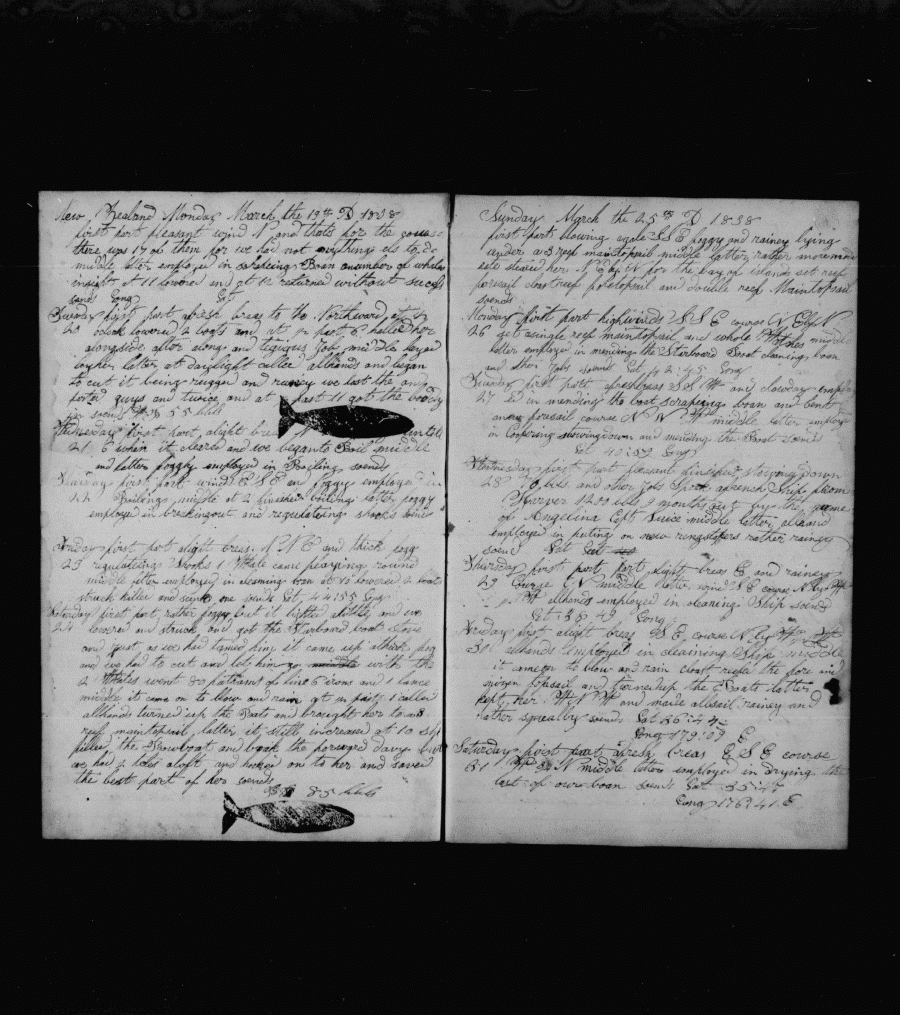 New Zealand Monday March the 19th D 1838
first part pleasant wind N and thats for the
there was 17 of them for we had not anything els to do
middle latter employed in scraping Boan a number of whales
insight at 11 lowered and at 12 returned without success
Long Lat
Tuesday first part afresh breas to the Northward at
20 oclock lowered 2 boats and at past 6 halled her
alongside after along and tegious Job middle layed
by her latter at daylight called allhands and began
to cut it being rugged and rainey we lost the
guys and twice and at past 11 got the boddy
in soends 55 bbls
Wednesday first part alight
21 6 when it cleared and we began to Boil middle
and latter foggy employed in Boiling soends
Thursday first part winds E S E an foggy employed in
22 Boiling middle at 2 finished boiling latter foggy
employed in breakingout and regulateing shooks soends
Friday first part alight breas N N E and thick fogg
23 regulating 1 Whale came playing round
middle latter employed in cleaning boan at 10 lowered 2 boats
struck killer and sunk one soends Lat 44:55 Long
Saturday first part rather foggy but it lighted alittle and we
24 lowered and struck and got the Starboard boat stove
and just as we had lamed him it came up athick fog
and we had to cut and let him go with the
2 Whales went 80 patrans of line 6 irons and 1 lance
middle it came on to blow and rain at past 1 called
allhands turned up the Boats and brought her to a 3
reef maintopsail latter it still increased at 10
filled the Bowboat and book the forward davy but
we had 2 holes aloft and hooked on to her and saved
the best part of her soends
85 bbls
Sunday March the 25th D 1838
first part blowing agale S S E foggy and rainey lying
under a 3 reef maintopsail middle latter rather more
steared her N N for the bay of islands set reef
forsail close reef foretopsail and double reef Maintopsail
soends
Monday first part highwinds S S E course N Ely N
26 set asingle reef maintopsail and whole middle
latter employed in mending the Starboard Boat cleaning boan
and other Jobs soends Lat 42:45 Long
Tuesday first part afreshbreas S S W any clowdey employ
27 ed in mending the boat scrapeing boan and bent
anew forsail course N W middle latter employ
in Coopering stowingdown and mending the Boat soends
Lat 40:59 Long
Wednesday first part pleasant finished stowing down
28 70 bbls and other Jobs Spok afrench Ship from
Harver 1200 bbls 9 months out by the name
of Angelina Capt Luice middle latter allhand
employed in puting on new ringstopers rather rainey
soend Lat
Thursday first part part alight breas E and rainey
29 Course N middle latter wind S E course N
allhands employed in cleaning Ship soend
Lat 38:49 Long
Friday first alight breas S E course N
30 allhands employed in cleaining Ship middle
it came on to blow and rain cloast reefed the fore and
mizen topsail and turned up the Boats latter
kept her W N W and made allsail rainey and
rather squealby soends Lat 36:44
Long 179:09 E
Saturday first part afresh breas E S E course
31 N middle latter employed in drying the
last of our boan soends Lat 35:47
Long 176:41 E